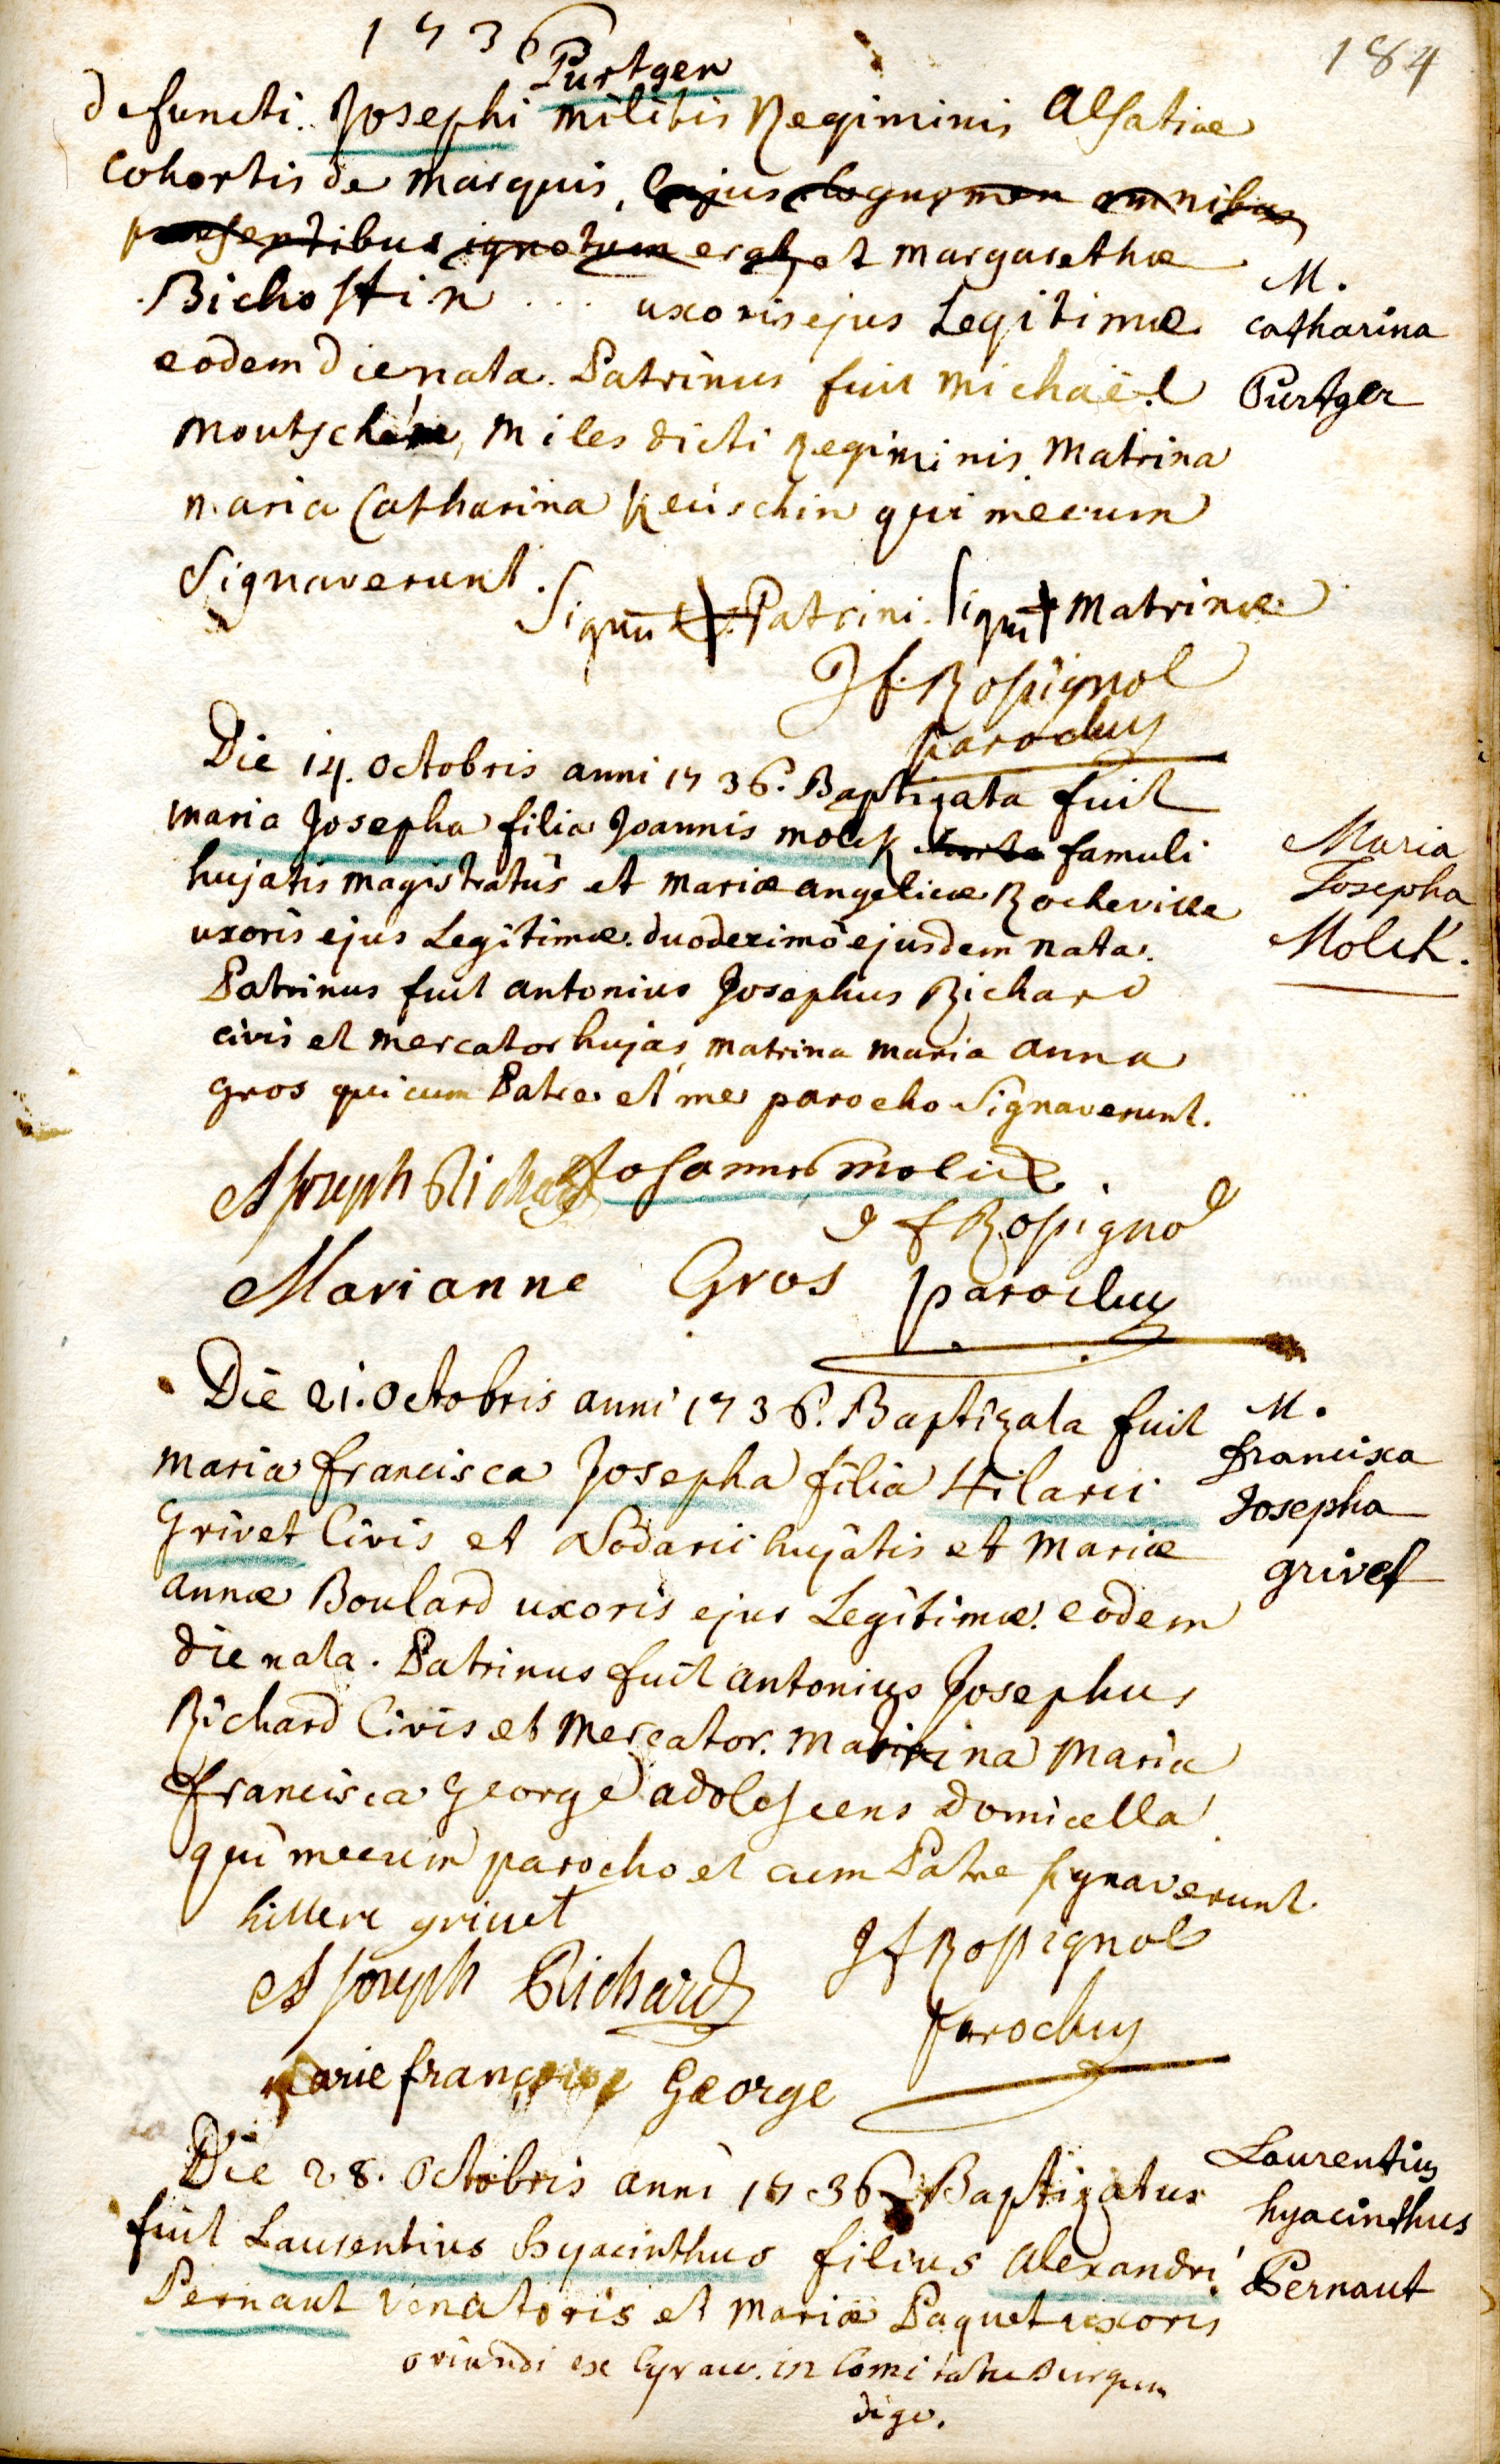 1736
184
Purtger
defuncti Josephi militis Regiminis Alsatiae
Cohortis de Marquis, cujus cognomen omnibus
praesentibus ignotum erat, et Margarethae
Bichostin ... uxoris ejus Legitimae
eodem die nata. Patrinus fuit Michaël
Moutsch miles dicti Regiminis Matrina
Maria Catharina Keüschin qui mecum
Signaverunt.
Signū Patrini. Signū Matrinae
M.
Catharina
Purtger
J f. Rossignol
parochus
Die 14. Octobris anni 1736. Baptizata fuit
Maria Josepha filia Joannis Molck famuli
hujatis magistratus et Mariae Angelicae Rocheville
uxoris ejus Legitimae. duodecimo ejusdem nata.
Patrinus fuit Antonius Josephus Richard
civis et mercator hujas, matrina Maria Anna
Gros qui cum Patre et me parocho Signaverunt.
Maria
Josepha
Molck.
A Joseph Richard Johannes molick
J f Rossignol
Marianne Gros parochus
Die 21. Octobris anni 1736. Baptizata fuit
Maria francisca Josepha filia Hilarii
Grivet Civis et Sodarii hujatis et Mariae
annae Boulard uxoris ejus Legitimae. eodem
die nata. Patrinus fuit Antonius Josephus
Richard Civis et Mercator. Matrina Maria
francisca George adolescens domicella
qui mecum parocho et cum Patre signaverunt.
M.
francisca
Josepha
grivet
hillere grivet
J f Rossignol
A Joseph Richard
parochus
marie françoise George
Die 28. Octobris anni 1736 Baptizatus
fuit Laurentius hyacinthus filius Alexandri
Pernaut Venatoris et Mariae Paquet uxoris
oriundi ex in Comitatu Burgun
diae.
Laurentius
hyacinthus
Pernaut